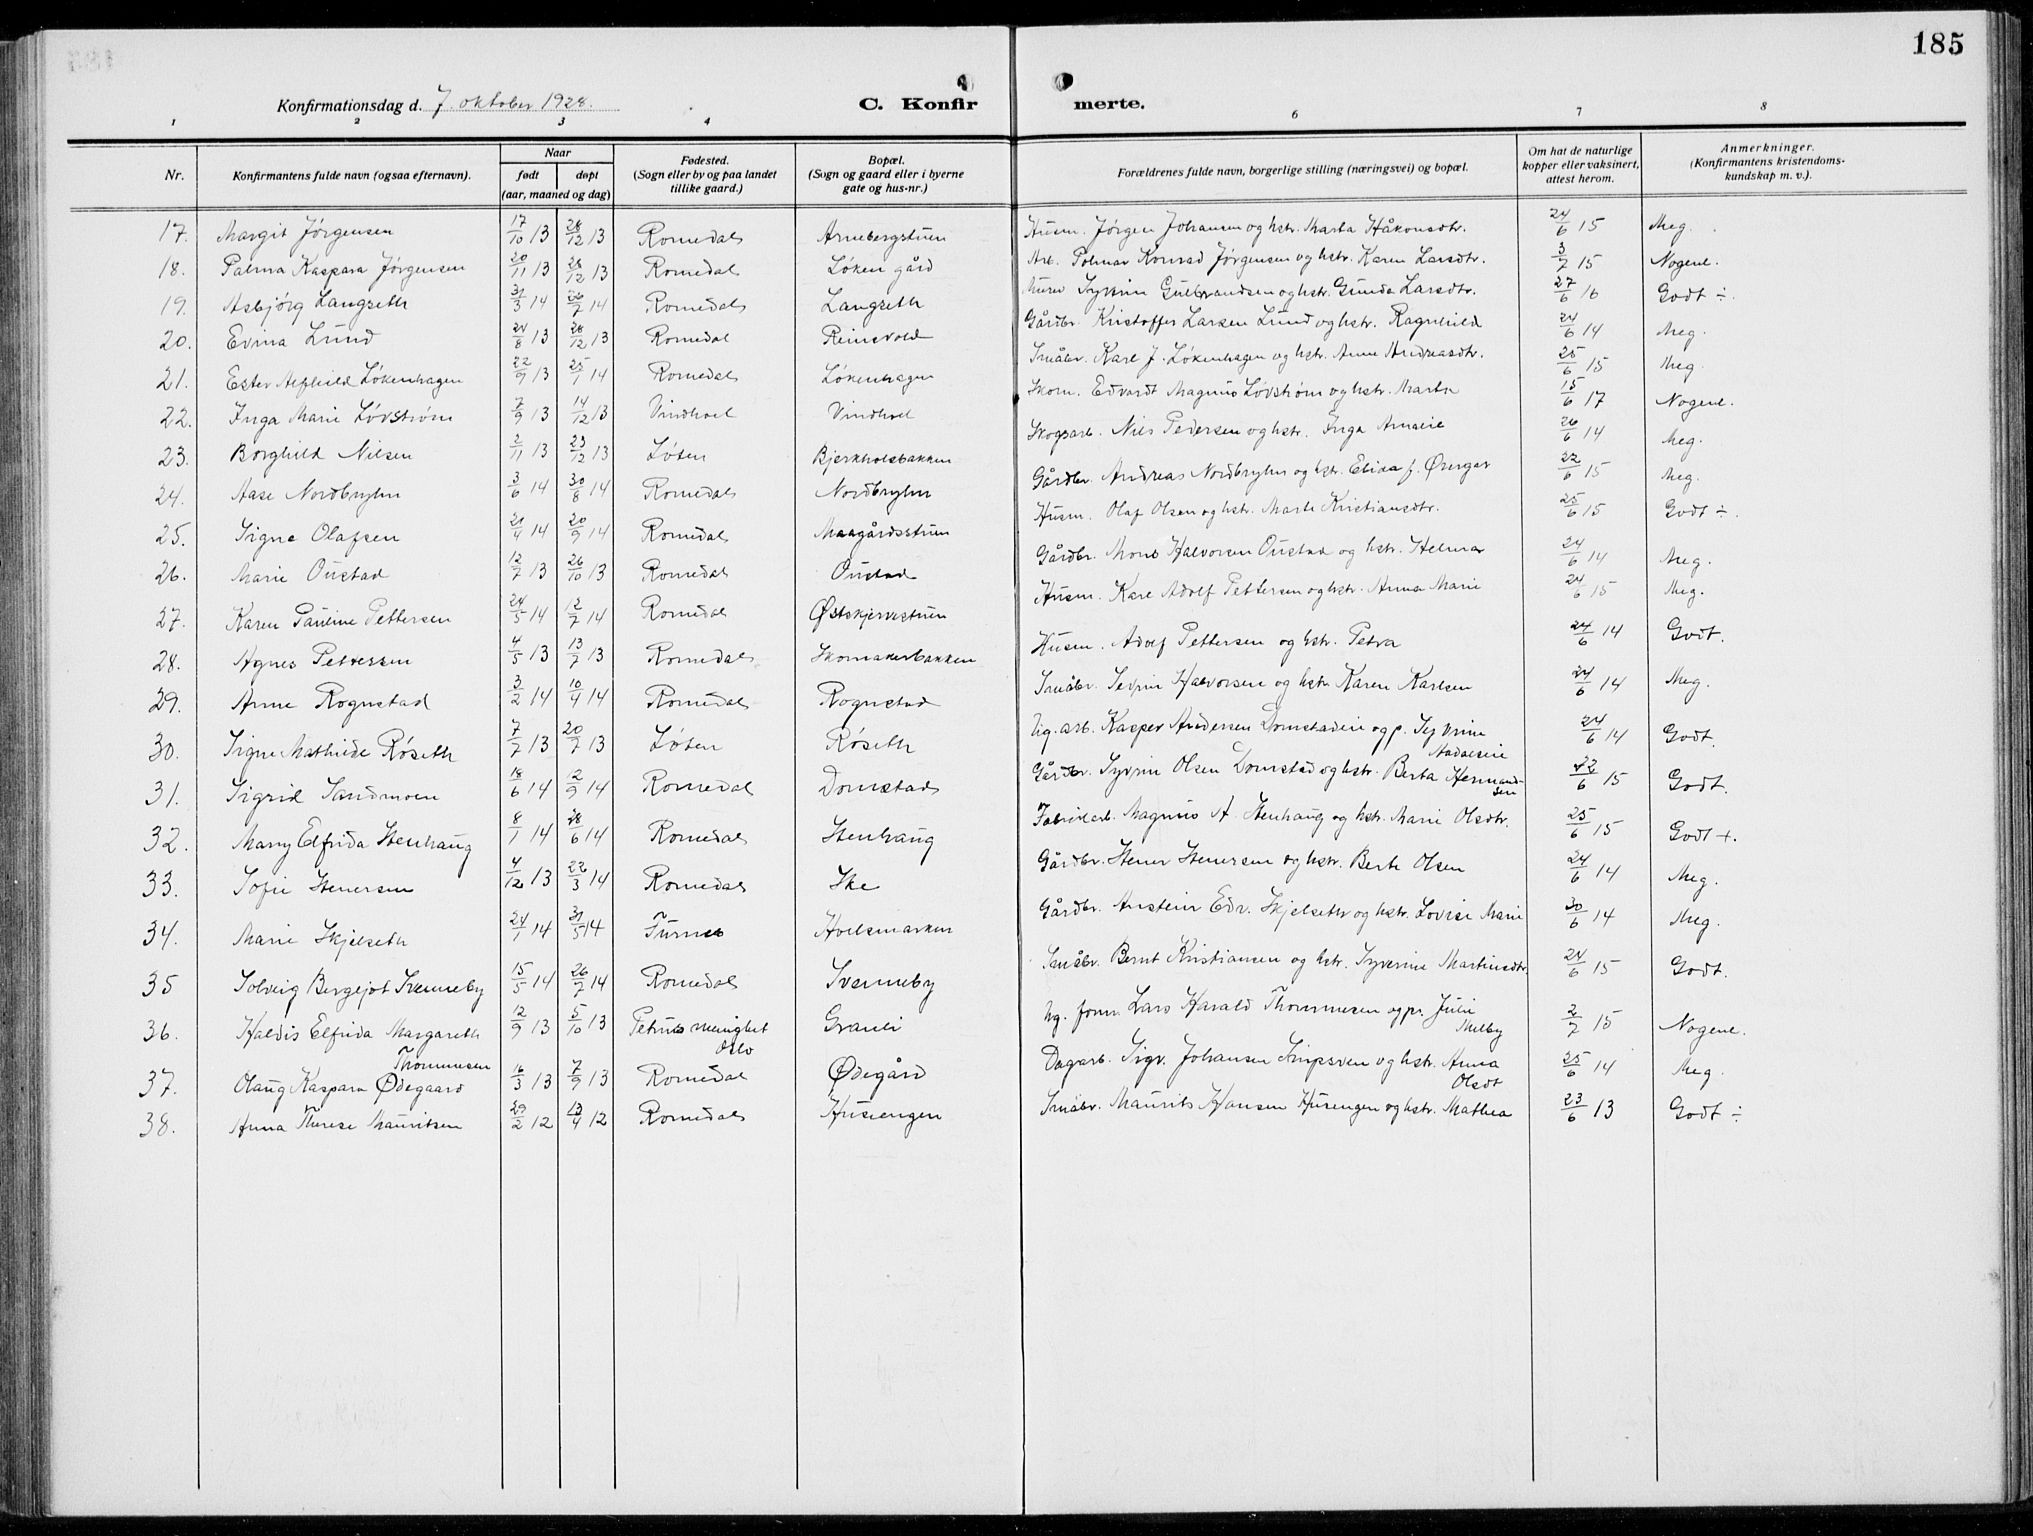 185
Konfirmationsdag d. 7. oktober 1928.
C. Konfir merte.
1 2 3 4 6 7 8
Nr. | Konfirmantens fulde navn (ogsaa efternavn). | Naar født | døpt (aar, maaned og dag) | Fødested. (Sogn eller by og paa landet tillike gaard.) | Bopæl. (Sogn og gaard eller i byerne gate og hus-nr.) | Forældrenes fulde navn, borgerlige stilling (næringsvei) og bopæl. | Om hat de naturlige kopper eller vaksinert, attest herom. | Anmerkninger. (Konfirmantens kristendomskundskap m. v.).
17. Margit Jörgensen 17/10 13 28/12 13 Romedal Arnebergstuen Husm. Jörgen Johansen og hstr. Marta Håkonsdtr. 24/6 15 Meg.
18. Palma Kaspara Jörgensen 20/11 13 28/12 13 Romedal Löken gård Arb. Polmar Konrad Jörgensen og hstr. Karen Larsdtr. 3/7 15 Nogenl.
19. Asbjörg Langseth 31/3 14 26/7 14 Romedal Langseth Murer Syvrin Gulbrandsen og hstr. Gunda Larsdtr. 27/6 16 Godt ÷.
20. Evina Lund 24/8 13 28/12 13 Romedal Reinsvold Gårdbr. Kristoffer Larsen Lund og hstr. Ragnhild 24/6 14 Meg.
21. Ester Alfhild Lökenhagen 22/9 13 25/1 14 Romedal Lökenhagen Småbr. Karl J. Lökenhagen og hstr. Anne Andreasdtr. 25/6 15 Meg.
22. Inga Marie Lövström 7/9 13 14/12 13 Vindhol Vindhol Skom. Edvardt Magnus Lövström og hstr. Marta 15/6 17 Nogenl.
23. Borghild Nilsen 2/11 13 23/12 13 Löten Bjerkholsbakken Skogsarb. Nils Pedersen og hstr. Inga Amalie 26/6 14 Meg.
24. Aase Nordbryhn 3/6 14 30/8 14 Romedal Nordbryhn Gårdbr. Andreas Nordbryhn og hstr. Elida f. 22/6 15 Meg.
25. Signe Olafsen 21/4 14 20/9 14 Romedal Maagårdsstuen Husm. Olaf Olsen og hstr. Marte Kristiansdtr. 25/6 15 Godt ÷.
26. Marie Oustad 12/7 13 26/10 13 Romedal Oustad Gårdbr. Mons Halvorsen Oustad og hstr. Helma 24/6 14 Meg.
27. Karen Pauline Pettersen 24/5 14 12/7 14 Romedal Østskjervestuen Husm. Karl Adolf Pettersen og hstr. Anna Marie 24/6 15 Meg.
28. Agnes Pettersen 4/5 13 13/7 13 Romedal Skomakerbakken Husm. Adolf Pettersen og hstr. Petra 24/6 14 Godt.
29. Anne Rognstad 3/2 14 10/4 14 Romedal Rognstad Småbr. Sevrin Halvorsen og hstr. Karen Karlsen 24/6 14 Meg.
30. Signe Mathilde Röseth 7/7 13 20/7 13 Löten Röseth Ug. arb. Kasper Andersen Domstadeie og p. Syvrine
Aadalseie 24/6 14 Godt.
31. Sigrid Sandmoen 18/6 14 12/9 14 Romedal Domstad Gårdbr. Syvrin Olsen Domstad og hstr. Berta Hermand-
sen 22/6 15 Godt.
32. Marry Elfrida Stenhaug 8/1 14 28/6 14 Romedal Stenhaug Fabrikarb. Magnus A. Stenhaug og hstr. Marie Olsdtr. 25/6 15 Godt +.
33. Sofie Stenersen 4/12 13 22/3 14 Romedal Ske Gårdbr. Stener Stenersen og hstr. Berte Olsen 24/6 14 Meg.
34. Marie Skjelseth 24/1 14 31/5 14 Furnes Hoelsmarken Gårdbr. Anstein Edv. Skjelseth og hstr. Lovise Marie 30/6 14 Meg.
35 Solveig Bergljot Svenneby 15/5 14 26/7 14 Romedal Svenneby Småbr. Bernt Kristiansen og hstr. Syverine Martinsdtr. 24/6 15 Godt.
36. Haldis Elfrida Margareth
Thommesen 12/9 13 5/10 13 Petrus menighet
Oslo Grauli Ug. form. Lars Harald Thommesen og p. Juli
Melby 2/7 15 Nogenl.
37. Olaug Kaspara Ødegaard 16/3 13 7/9 13 Romedal Ødegård Dagarb. Sigv. Johansen og hstr. Anna
Olsdt 25/6 14 Meg.
38. Anna Therese Mauritsen 29/2 12 13/4 12 Romedal Husengen Småbr. Maurits Hansen Husengen og hstr. Mathea 23/6 13 Godt ÷